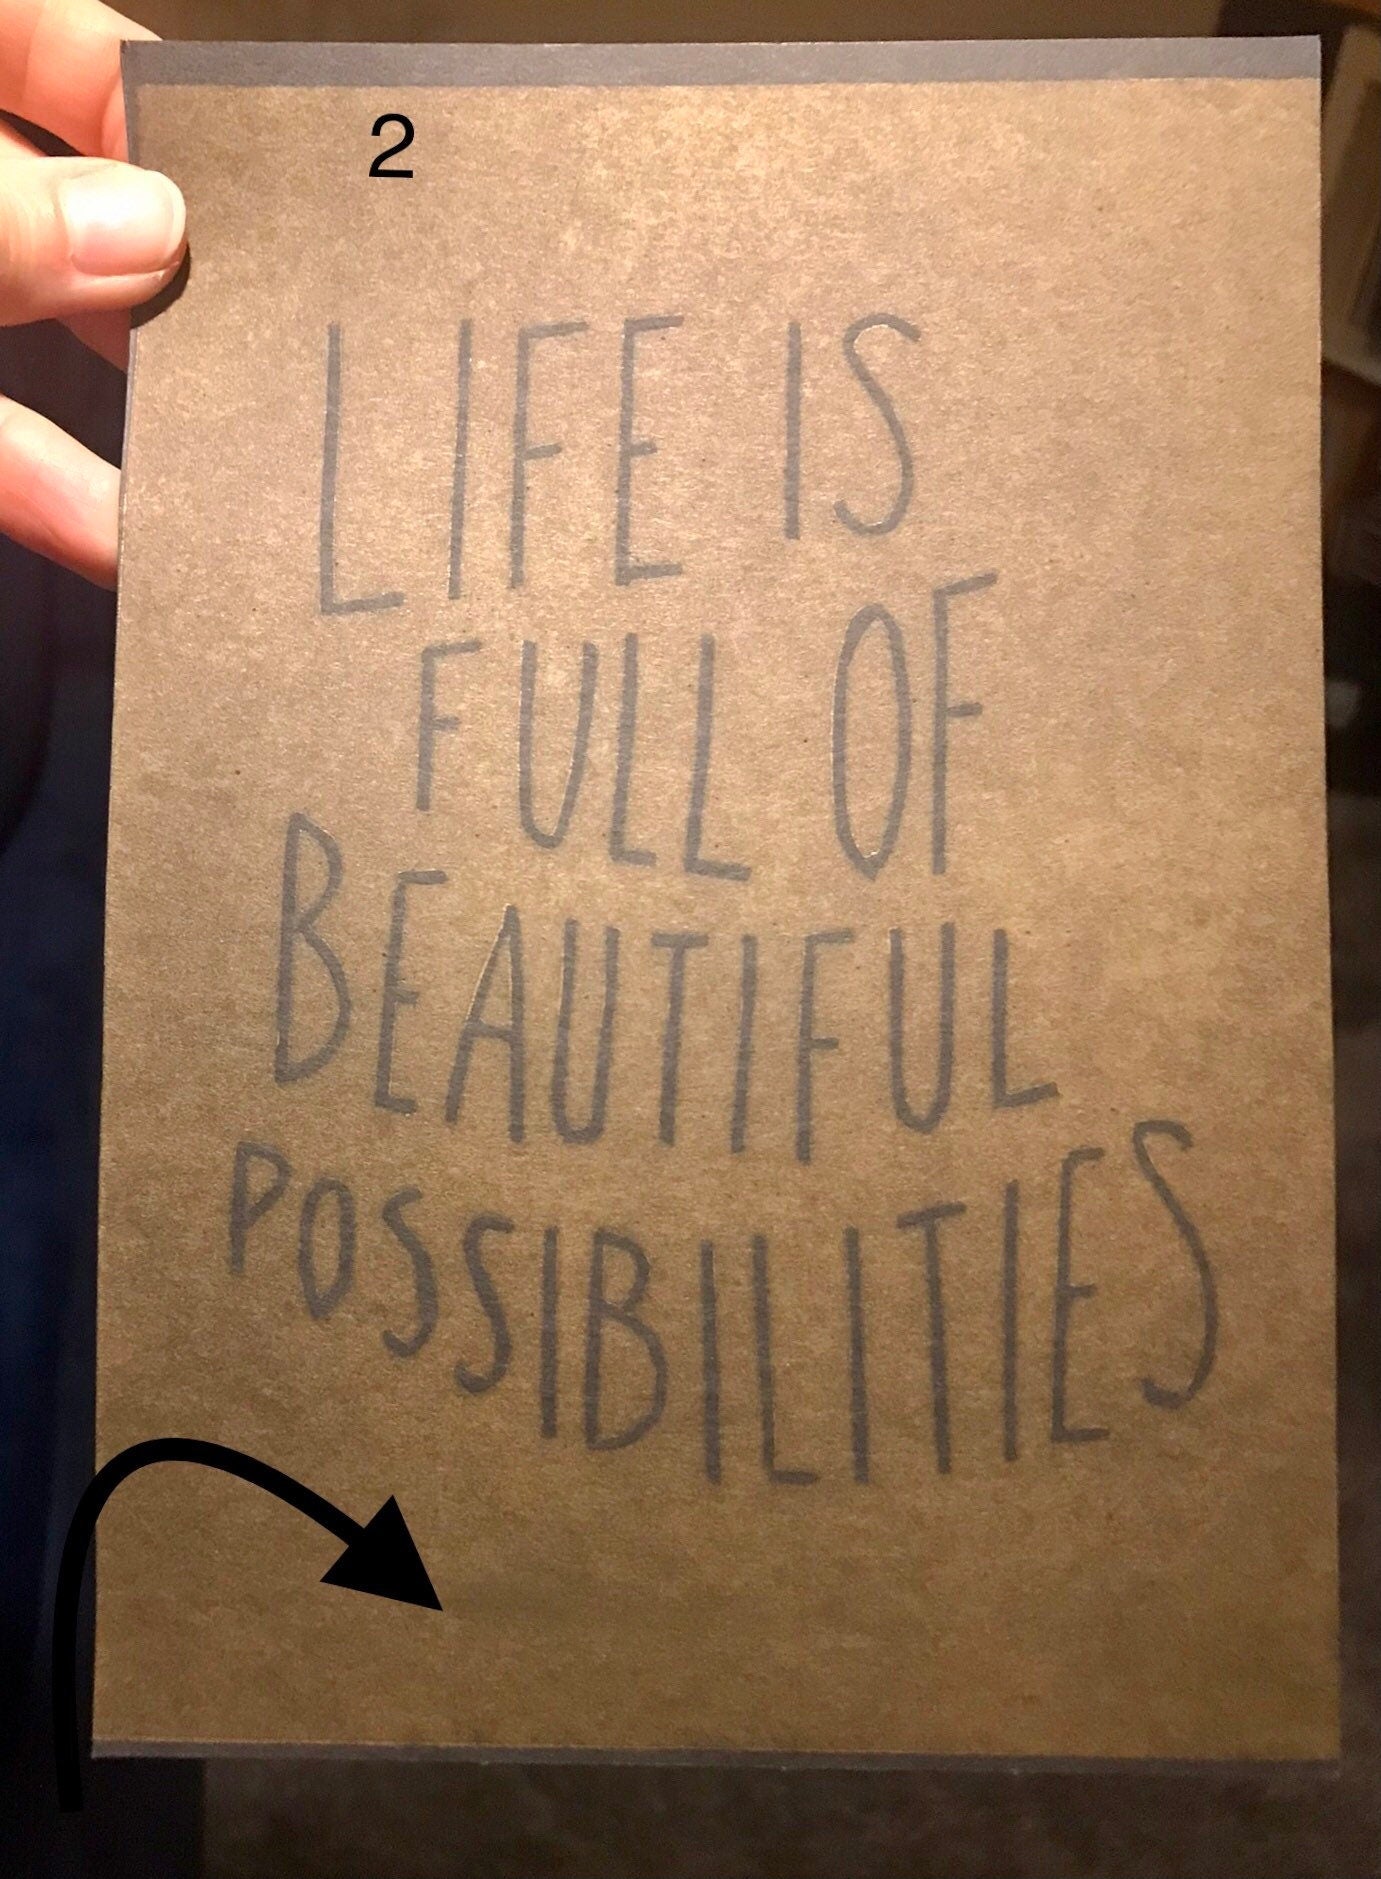 2
LIFE IS
FULL OF
BEAUTIFUL
POSSIBILITIES